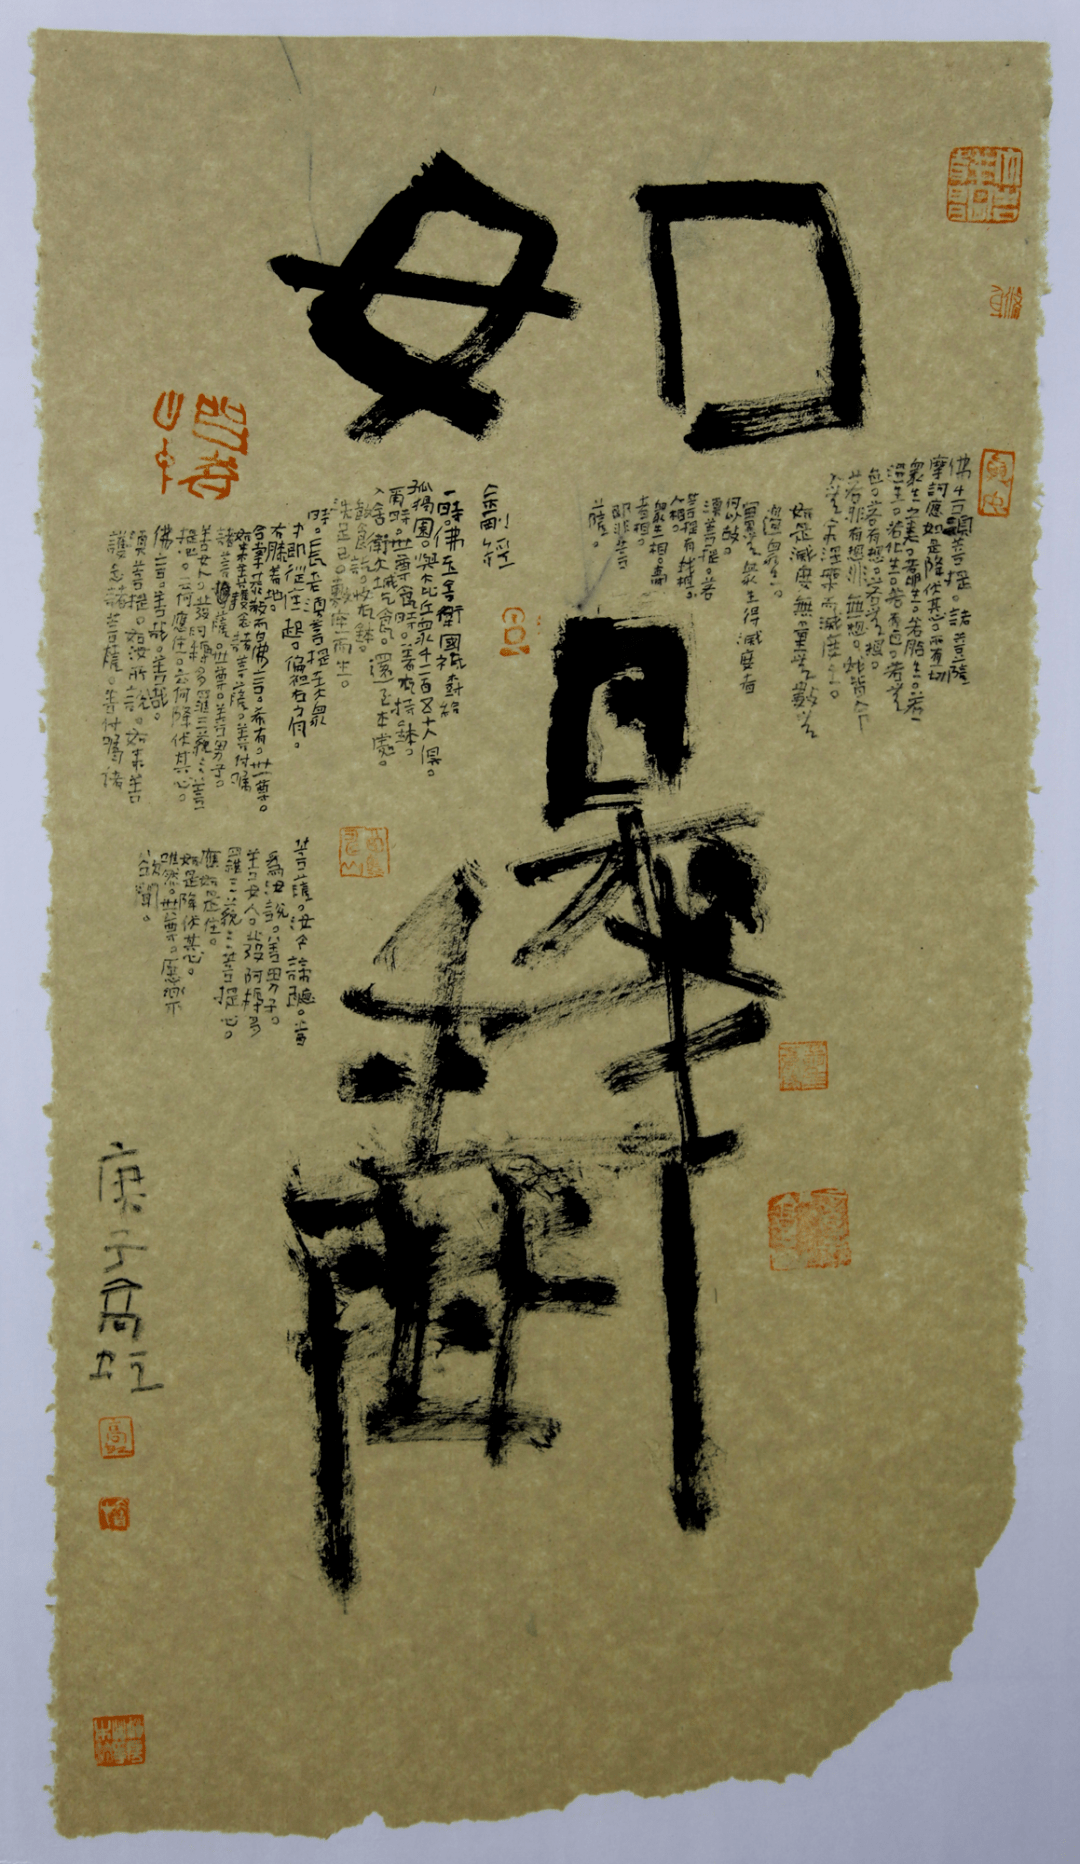 如
金剛經
一時。佛在舍衛國祇樹給
孤獨園。與大比丘眾千二百五十人俱。
爾時。世尊食時。著衣持鉢。
入舍衛大城乞食。還至本處。
飯食訖。收衣鉢。
洗足已。敷座而坐。
時。長老須菩提在大眾
中即從座起。偏袒右肩。
右膝著地。
合掌恭敬而白佛言。希有。世尊。
如來善護念諸菩薩。善付囑
諸菩薩。世尊。善男子。
善女人。發阿耨多羅三藐三菩
提心。云何應住。云何降伏其心。
佛言。善哉。善哉。
須菩提。如汝所說。如來善
護念諸菩薩。善付囑諸
菩薩。汝今諦聽。當
為汝說。善男子。
善女人。發阿耨多
羅三藐三菩提心。
應如是住。
如是降伏其心。
唯然。世尊。願樂
欲聞。
佛告須菩提。諸菩薩
摩訶應如是降伏其心。所有一切
眾生之類。若卵生。若胎生。若
濕生。若化生。若有色。若無
色。若有想。若無想。
若非有想非無想。我皆令
入無餘涅槃而滅度之。
如是滅度無量無數無
邊眾生。
實無眾生得滅度者
何以故。
須菩提。若
菩薩有我相。
人相。
眾生相。壽
者相。
即非菩
薩。
庚子高